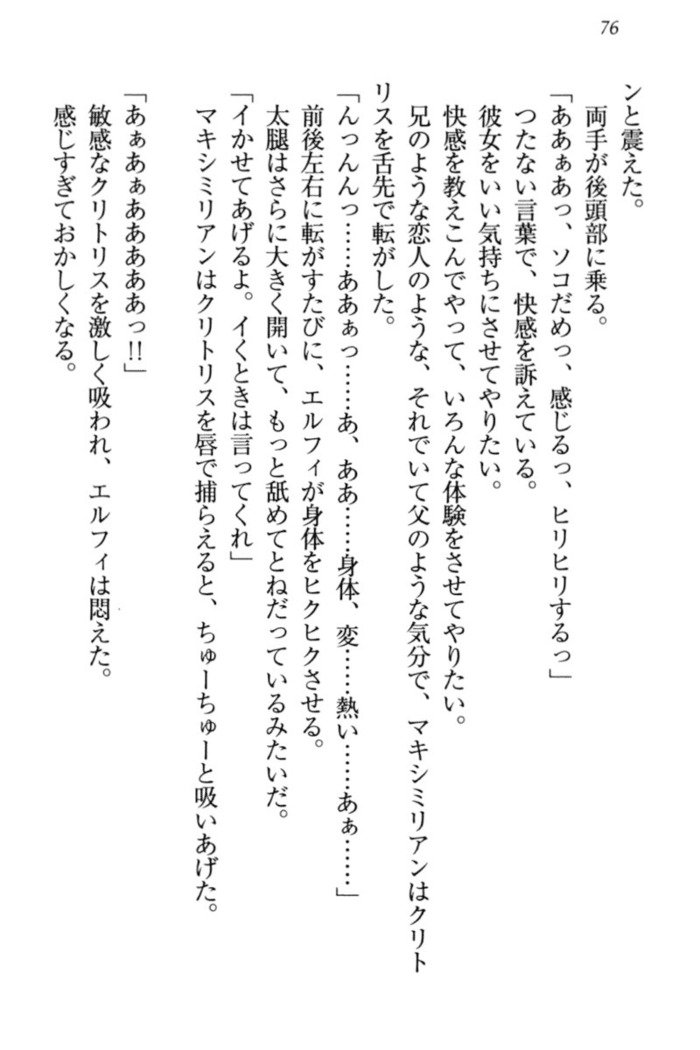 76
ンと震えた。
両手が後頭部に乗る。
「ああぁあっ、ソコだめっ、感じるっ、ヒリヒリするっ」
つたない言葉で、快感を訴えている。
彼女をいい気持ちにさせてやりたい。
快感を教えこんでやって、いろんな体験をさせてやりたい。
兄のような恋人のような、それでいて父のような気分で、マキシミリアンはクリト
リスを舌先で転がした。
「んっんんっ……ああぁっ……あ、ああ……身体、変……熱い……あぁ……」
前後左右に転がすたびに、エルフィが身体をヒクヒクさせる。
太腿はさらに大きく開いて、もっと舐めてとねだっているみたいだ。
「イかせてあげるよ。イくときは言ってくれ」
マキシミリアンはクリトリスを唇で捕らえると、ちゅーちゅーと吸いあげた。
「あぁあぁあああああっ!!」
敏感なクリトリスを激しく吸われ、エルフィは悶えた。
感じすぎておかしくなる。